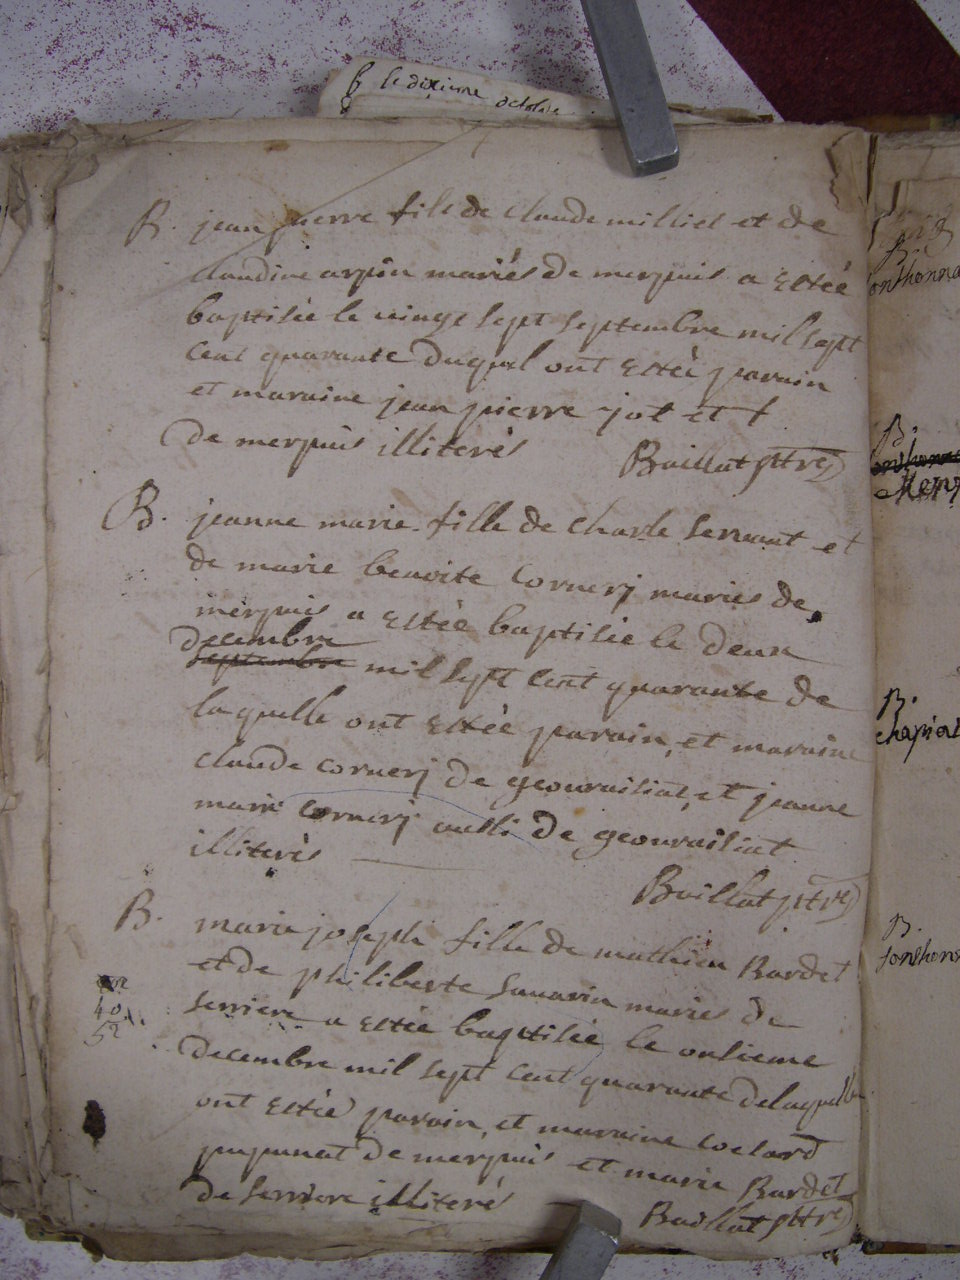 le dixieme octobre
B. jean pierre fils de claude milliet et de
claudine arpin mariés de merpuis a Estéé
baptisée le vingt sept septembre mil sept
cent quarante duquel ont Estéé parain
et maraine jean pierre jot et f
de merpuis illiterés Baillat ptre
B. jeanne marie fille de charle servant et
de marie benoite cornerj mariés de
merpuis a Estéé baptisée le deux
decembre
septembre mil sept cent quarante de
laquelle ont Estéé parain, et maraine
claude cornerj de geovraisiat, et jeanne
marie cornerj aussi de geovraisiat
illiterés
Baillat ptre
B. marie joseph fille de mathieu Bardet
et de philiberte savarin mariés de
40
52
serriere a Estéé baptisée le onsieme
decembre mil sept cent quarante delaquelle
ont Estéé parain, et maraine
de merpuis et marie Bardet
de serriere illiterés
Baillat ptre
B.
B.
B.
chapiat
B.